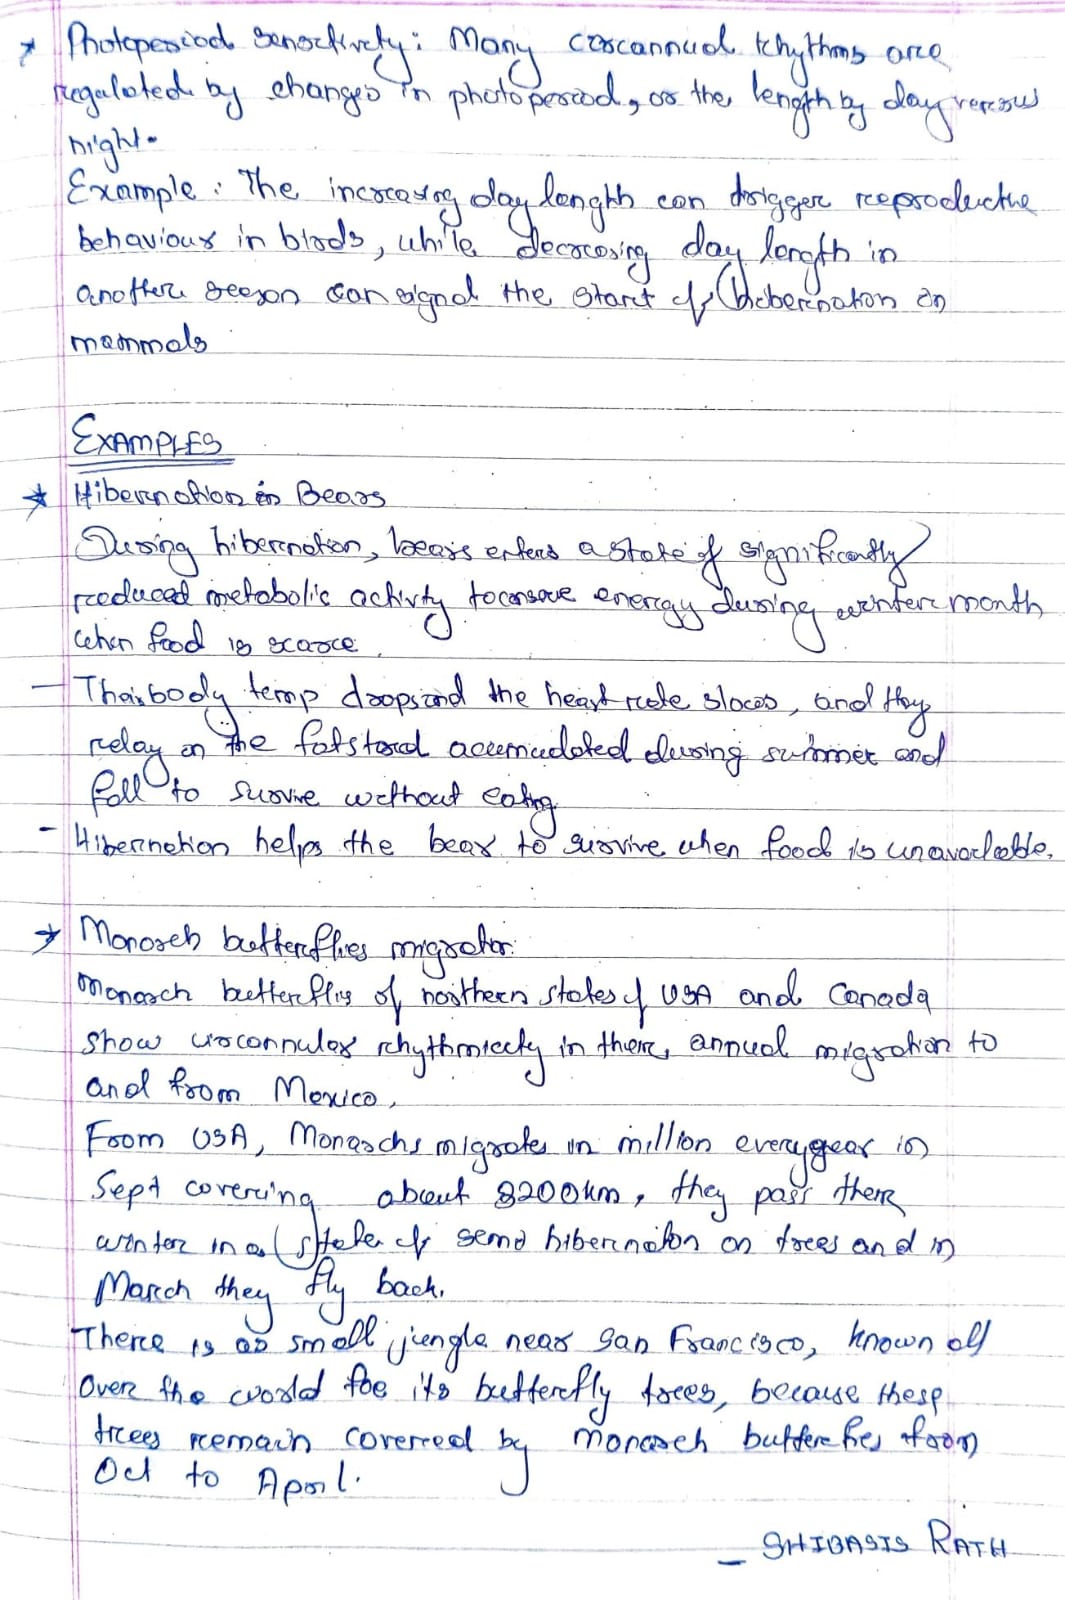 * Photoperiod sensctivety: Many circannual rhythms are
regulated by changes in photoperiod, or the length by day versus
night.
Example: The increasing day length can trigger reproductive
behaviour in birds, while decreasing day length in
another season can signal the start of hibernation in
mammals
EXAMPLES
* Hibernation in Bears
During hibernation, bears enters a state of significantly
reduced metabolic activity to conserve energy during winter month
when food is scarce.
- Thair body temp drops and the heart rate slows, and they
relay on the fat stored accumulated during summer and
fall to survive without eating.
- Hibernation helps the bear to survive when food is unavailable.
* Monarch butterflies migration.
Monarch butterflies of northern states of USA and Canada
show circannular rhythmicity in there annual migration to
and from Mexico.
From USA, Monarchs migrates in million every year in
Sept covering about 3200km, they pass there
winter in a state of semi hibernation on trees and in
March they fly back.
There is as small jungle near San Francisco, known all
over the world for its butterfly trees, because these
trees remain covered by monarch butterflies from
Oct to April.
- SHIBASIS RATH